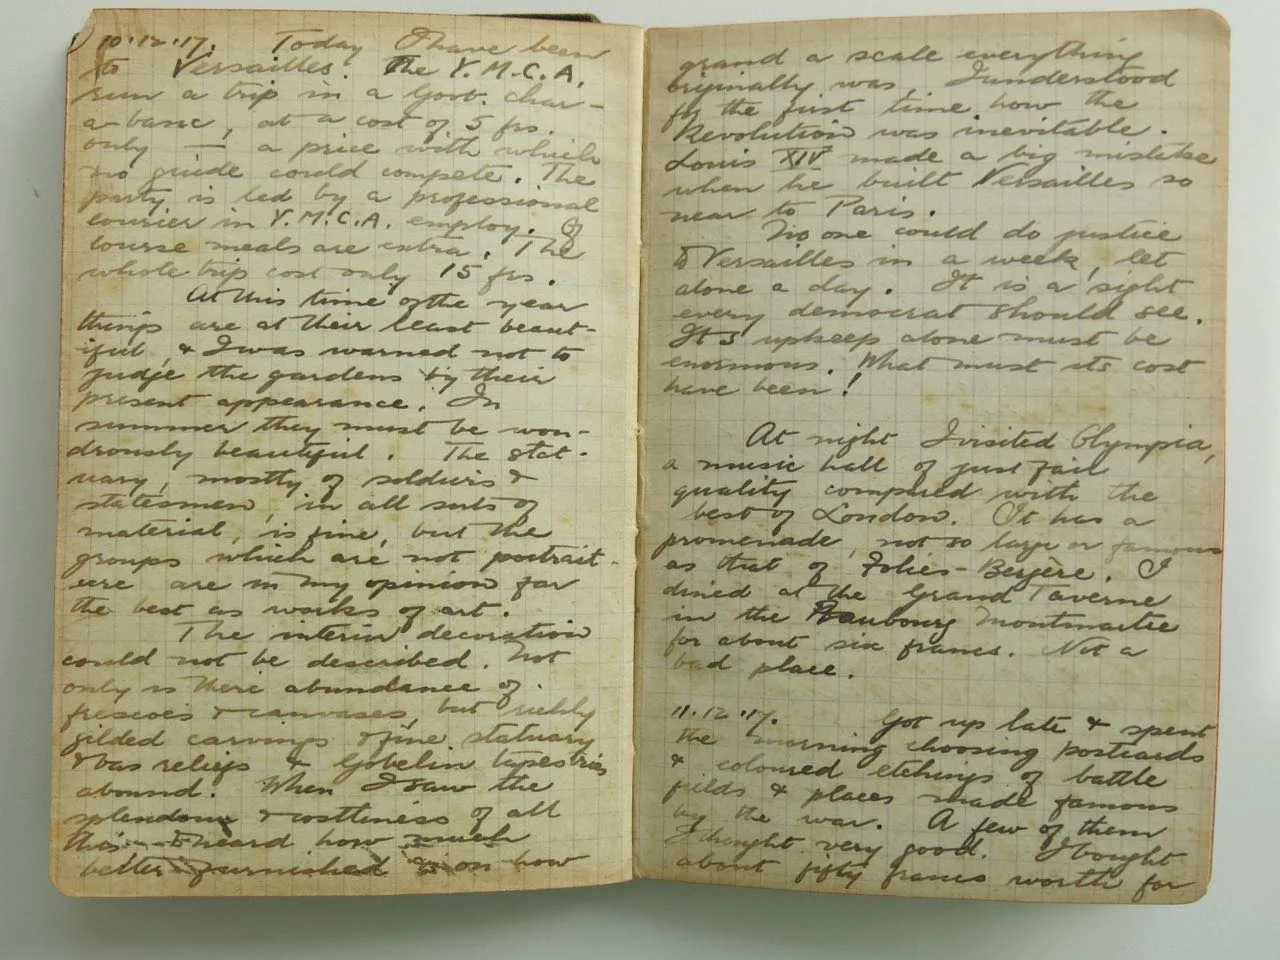 10.12.17. Today I have been
to Versailles. The Y.M.C.A.
run a trip in a Govt. char-
a-banc, at a cost of 5 frs.
only — a price with which
no guide could compete. The
party is led by a professional
courier in Y.M.C.A. employ. Of
course meals are extra. The
whole trip cost only 15 frs.
At this time of the year
things are at their least beaut-
iful, & I was warned not to
judge the gardens by their
present appearance. In
summer they must be won-
drously beautiful. The stat-
uary, mostly of soldiers &
statesmen, in all sorts of
material, is fine, but the
groups which are not portrait-
ure are in my opinion far
the best as works of art.
The interior decoration
could not be described. Not
only is there abundance of
frescoes & canvases, but richly
gilded carvings & fine statuary
& bas reliefs & Gobelin tapestries
abound. When I saw the
splendour & costliness of all
this & heard how much
better furnished & on how
grand a scale everything
originally was, I understood
for the first time how the
Revolution was inevitable.
Louis XIV made a big mistake
when he built Versailles so
near to Paris.
No one could do justice
to Versailles in a week, let
alone a day. It is a sight
every democrat should see.
Its upkeep alone must be
enormous. What must its cost
have been!
At night I visited Olympia,
a music hall of just fair
quality compared with the
best of London. It has a
promenade, not so large or famous
as that of Folies-Bergère. I
dined at the Grand Taverne
in the Faubourg Montmartre
for about six francs. Not a
bad place.
11.12.17. Got up late & spent
the morning choosing postcards
& coloured etchings of battle
fields & places made famous
by the war. A few of them
I thought very good. I bought
about fifty francs worth for